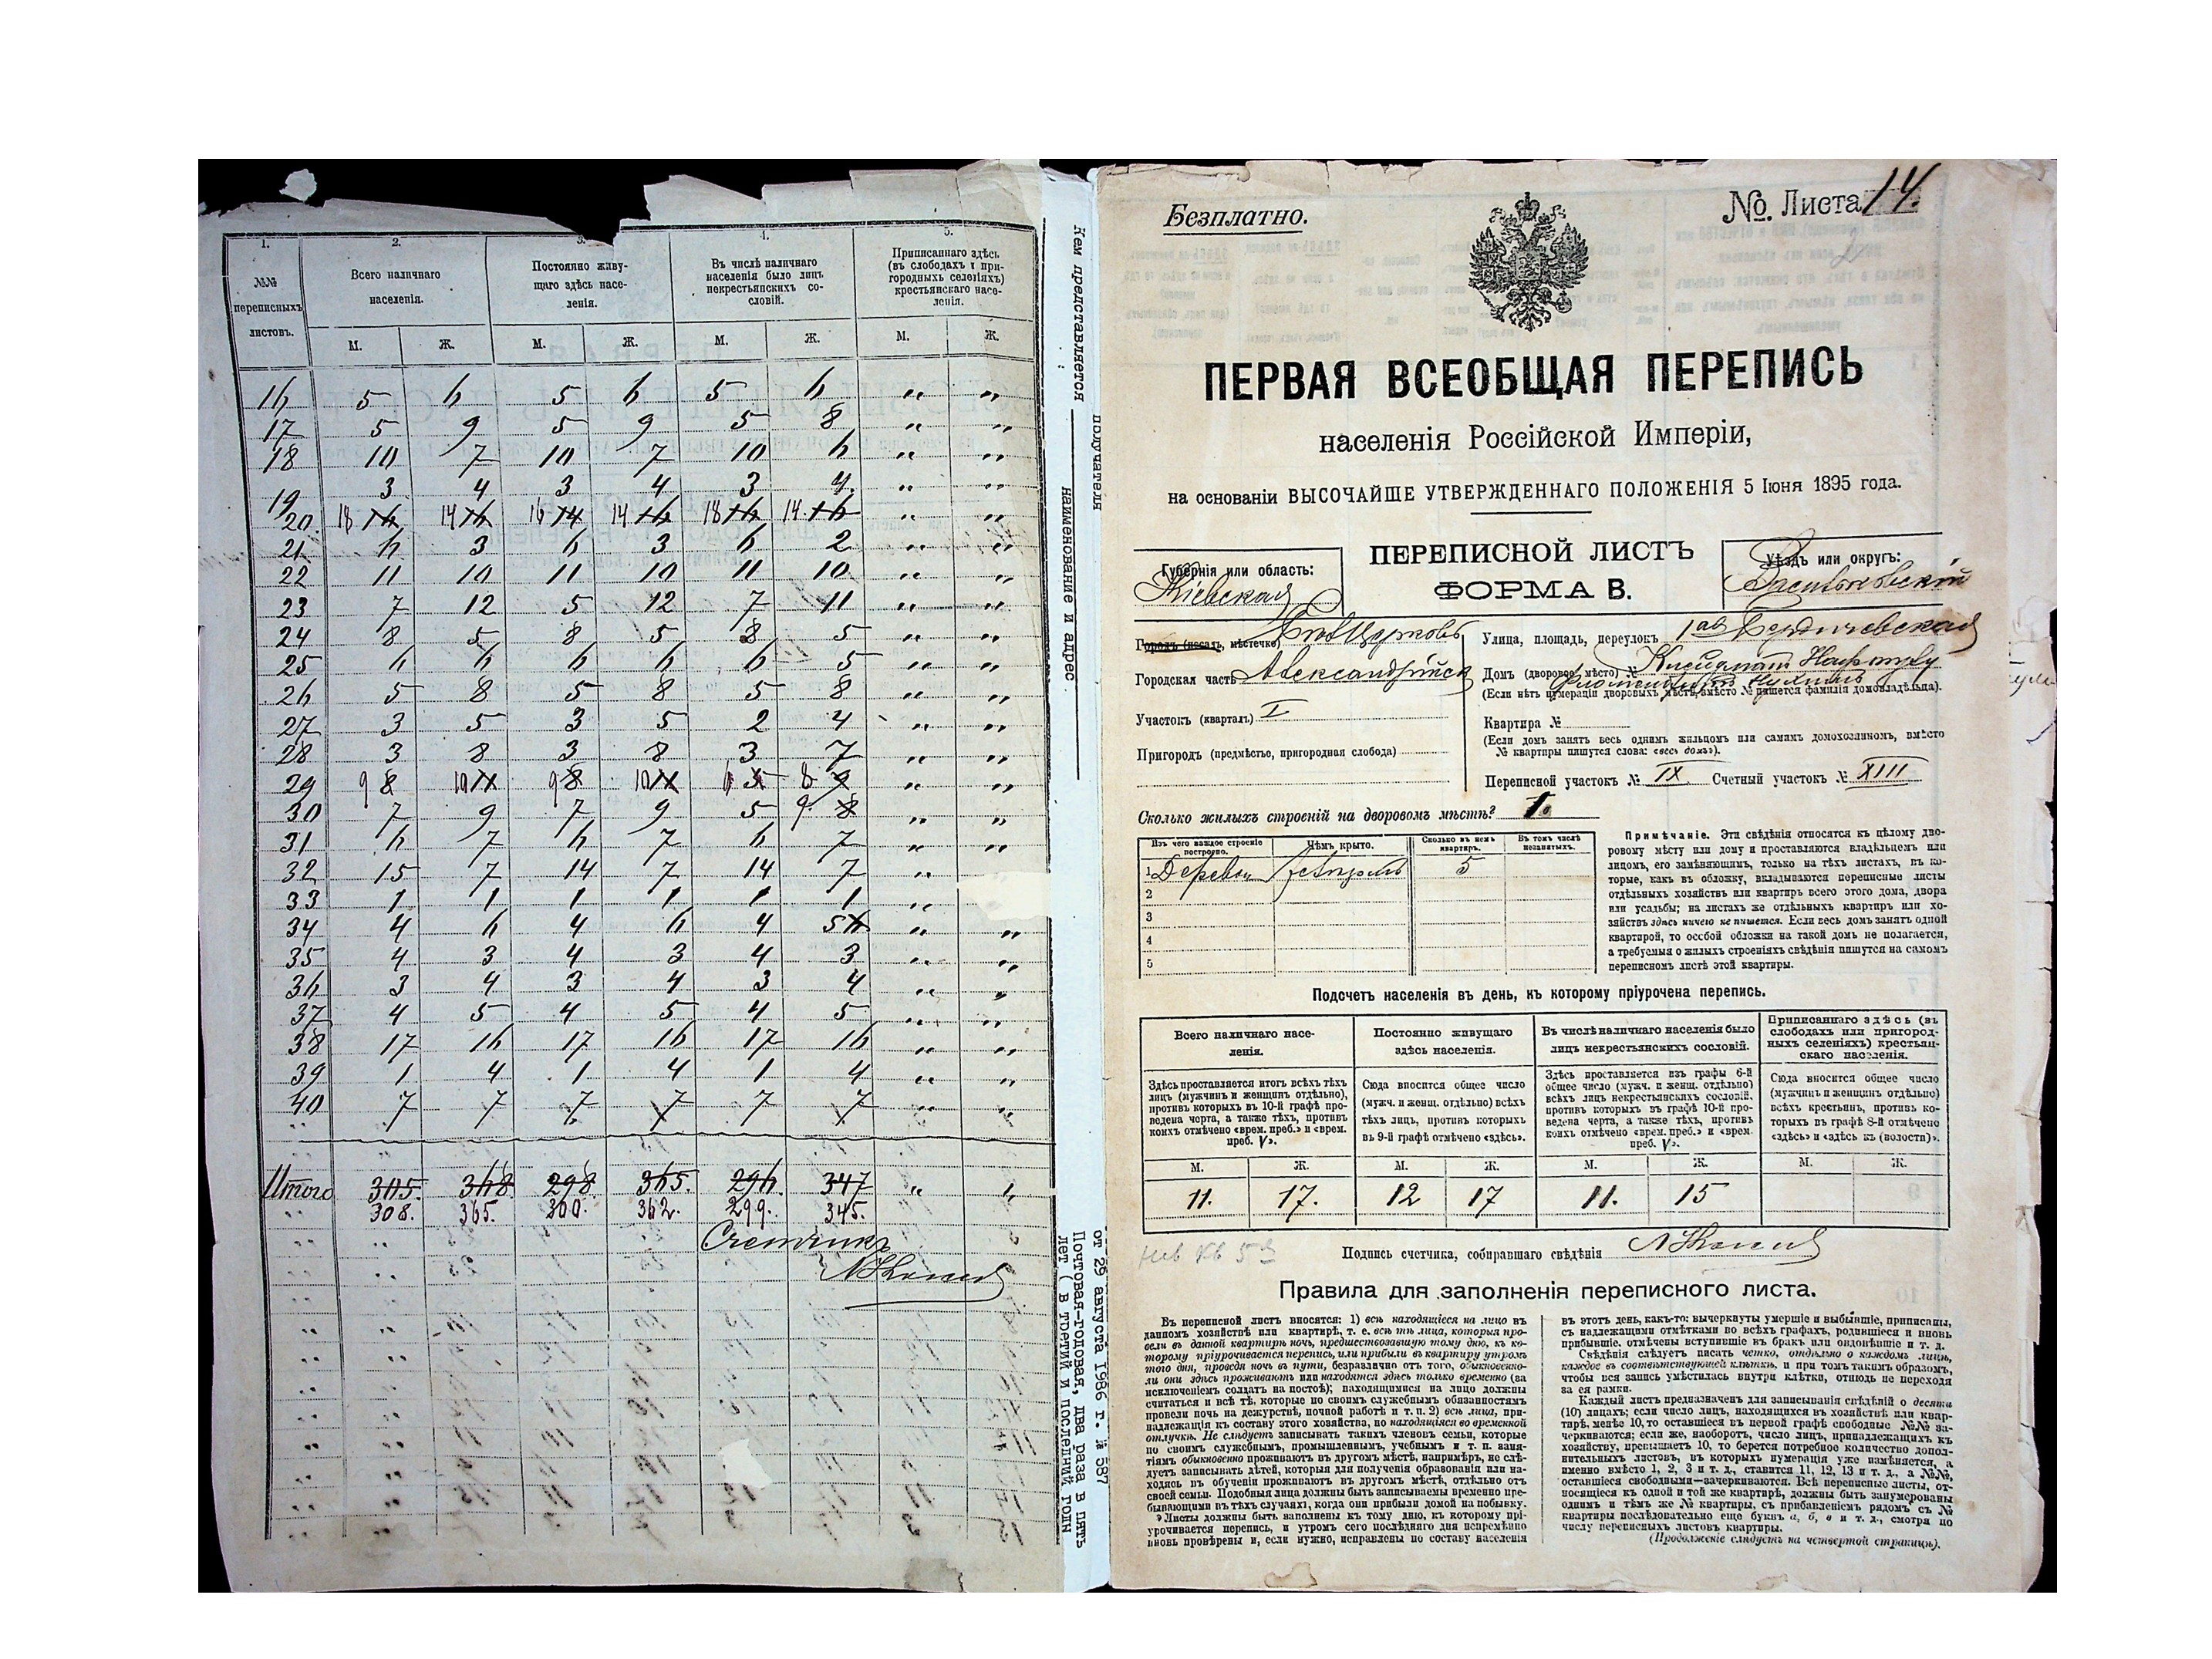 1. 2. 3. 4. 5.
№№ переписныхъ листовъ.
Всего наличнаго населенія.
Постоянно живущаго здѣсь населенія.
Въ числѣ наличнаго населенія было лицъ некрестьянскихъ сословій.
Приписаннаго здѣсь (въ слободахъ и пригородныхъ селеніяхъ) крестьянскаго населенія.
М. Ж. М. Ж. М. Ж. М. Ж.
16 5 6 5 6 5 6 „ „
17 5 9 5 9 5 8 „ „
18 10 7 10 7 10 6 „ „
19 3 4 3 4 3 4 „ „
20 18 16 14 16 16 14 14 16 18 16 14 16 „ „
21 6 3 6 3 6 2 „ „
22 11 10 11 10 11 10 „ „
23 7 12 5 12 7 11 „ „
24 8 5 8 5 8 5 „ „
25 6 6 6 6 6 5 „ „
26 5 8 5 8 5 8 „ „
27 3 5 3 5 2 4 „ „
28 3 8 3 8 3 7 „ „
29 9 8 10 9 8 10 5 8 9 „ „
30 7 9 7 9 5 9 8 „ „
31 6 7 6 7 6 7 „ „
32 15 7 14 7 14 7 „
33 1 1 1 1 1 1 „
34 4 6 4 6 4 5 6 „ „
35 4 3 4 3 4 3 „ „
36 3 4 3 4 3 4 „ „
37 4 5 4 5 4 5 „ „
38 17 16 17 16 17 16 „ „
39 1 4 1 4 1 4 „ „
40 7 7 7 7 7 7 „ „
Итого 305. 368 298 365. 296. 347 „ „
308. 365. 300. 362. 299. 345.
Счетчикъ
Кем представляется
наименование и адрес
получателя
от 29 августа 1986 г. № 587
Почтовая-годовая, два раза в пять
лет ( в третий и последний годы
Безплатно.
№. Листа 14.
ПЕРВАЯ ВСЕОБЩАЯ ПЕРЕПИСЬ
населенія Россійской Имперіи,
на основаніи ВЫСОЧАЙШЕ УТВЕРЖДЕННАГО ПОЛОЖЕНІЯ 5 Іюня 1895 года.
ПЕРЕПИСНОЙ ЛИСТЪ
ФОРМА В.
Губернія или область:
Кіевская
Уѣздъ или округъ:
Васильковскій
Городъ (посадъ, мѣстечко) Бѣл Церковь
Городская часть Александрійск
Участокъ (кварталъ) I
Пригородъ (предмѣстье, пригородная слобода)
Улица, площадь, переулокъ 1ая Бердичевская
Домъ (дворовое мѣсто) №
(Если нѣтъ нумераціи дворовыхъ мѣстъ, вмѣсто № пишется фамилія домовладѣльца).
Квартира №
(Если домъ занятъ весь однимъ жильцомъ или самимъ домохозяиномъ, вмѣсто
№ квартиры пишутся слова: «весь домъ»).
Переписной участокъ № IX Счетный участокъ № XIII
Сколько жилыхъ строеній на дворовомъ мѣстѣ? 1.
Изъ чего каждое строеніе построено.
Чѣмъ крыто.
Сколько въ немъ квартиръ.
Въ томъ числѣ незанятыхъ.
1 5
2
3
4
5
Примѣчаніе. Эти свѣдѣнія относятся къ цѣлому дво-
ровому мѣсту или дому и проставляются владѣльцемъ или
лицомъ, его замѣняющимъ, только на тѣхъ листахъ, въ ко-
торые, какъ въ обложку, вкладываются переписные листы
отдѣльныхъ хозяйствъ или квартиръ всего этого дома, двора
или усадьбы; на листахъ же отдѣльныхъ квартиръ или хо-
зяйствъ здѣсь ничего не пишется. Если весь домъ занятъ одной
квартирой, то особой обложки на такой домъ не полагается,
а требуемыя о жилыхъ строеніяхъ свѣдѣнія пишутся на самомъ
переписномъ листѣ этой квартиры.
Подсчетъ населенія въ день, къ которому пріурочена перепись.
Всего наличнаго населенія.
Постоянно живущаго здѣсь населенія.
Въ числѣ наличнаго населенія было лицъ некрестьянскихъ сословій.
Приписаннаго здѣсь (въ слободахъ или пригородныхъ селеніяхъ) крестьянскаго населенія.
Здѣсь проставляется итогъ всѣхъ тѣхъ лицъ (мужчинъ и женщинъ отдѣльно), противъ которыхъ въ 10-й графѣ проведена черта, а также тѣхъ, противъ коихъ отмѣчено «врем. преб.» и «врем. преб. V».
Сюда вносится общее число (мужч. и женщ. отдѣльно) всѣхъ тѣхъ лицъ, противъ которыхъ въ 9-й графѣ отмѣчено «здѣсь».
Здѣсь проставляется изъ графы 6-й общее число (мужч. и женщ. отдѣльно) всѣхъ лицъ некрестьянскихъ сословій, противъ которыхъ въ графѣ 10-й проведена черта, а также тѣхъ, противъ коихъ отмѣчено «врем. преб.» и «врем. преб. V».
Сюда вносится общее число (мужчинъ и женщинъ отдѣльно) всѣхъ крестьянъ, противъ которыхъ въ графѣ 8-й отмѣчено «здѣсь» и «здѣсь къ (волости)».
М. Ж. М. Ж. М. Ж. М. Ж.
11. 17. 12 17 11. 15
Подпись счетчика, собиравшаго свѣдѣнія
Правила для заполненія переписного листа.
Въ переписной листъ вносятся: 1) всѣ находящіеся на лицо въ
данномъ хозяйствѣ или квартирѣ, т. е. всѣ тѣ лица, которыя про-
вели въ данной квартирѣ ночь, предшествовавшую тому дню, къ ко-
торому пріурочивается перепись, или прибыли въ квартиру утромъ
того дня, проведя ночь въ пути, безразлично отъ того, обыкновенно-
ли они здѣсь проживаютъ или находятся здѣсь только временно (за
исключеніемъ солдатъ на постоѣ); находящимися на лицо должны
считаться и всѣ тѣ, которые по своимъ служебнымъ обязанностямъ
провели ночь на дежурствѣ, ночной работѣ и т. п. 2) всѣ лица, при-
надлежащія къ составу этого хозяйства, но находящіяся во временной
отлучкѣ. Не слѣдуетъ записывать такихъ членовъ семьи, которые
по своимъ служебнымъ, промышленнымъ, учебнымъ и т. п. заня-
тіямъ обыкновенно проживаютъ въ другомъ мѣстѣ, напримѣръ, не слѣ-
дуетъ записывать дѣтей, которыя для полученія образованія или на-
ходясь въ обученіи проживаютъ въ другомъ мѣстѣ, отдѣльно отъ
своей семьи. Подобныя лица должны быть записываемы временно пре-
бывающими въ тѣхъ случаяхъ, когда они прибыли домой на побывку.
Листы должны быть заполнены къ тому дню, къ которому прі-
урочивается перепись, и утромъ сего послѣдняго дня непремѣнно
вновь провѣрены и, если нужно, исправлены по составу населенія
въ этотъ день, какъ-то: вычеркнуты умершіе и выбывшіе, приписаны,
съ надлежащими отмѣтками во всѣхъ графахъ, родившіеся и вновь
прибывшіе, отмѣчены вступившіе въ бракъ или овдовѣвшіе и т. д.
Свѣдѣнія слѣдуетъ писать четко, отдѣльно о каждомъ лицѣ,
каждое въ соотвѣтствующей клѣткѣ, и при томъ такимъ образомъ,
чтобы вся запись умѣстилась внутри клѣтки, отнюдь не переходя
за ея рамки.
Каждый листъ предназначенъ для записыванія свѣдѣній о десяти
(10) лицахъ; если число лицъ, находящихся въ хозяйствѣ или квар-
тирѣ, менѣе 10, то оставшіеся въ первой графѣ свободные №№ за-
черкиваются; если же, наоборотъ, число лицъ, принадлежащихъ къ
хозяйству, превышаетъ 10, то берется потребное количество допол-
нительныхъ листовъ, въ которыхъ нумерація уже измѣняется, а
именно вмѣсто 1, 2, 3 и т. д., ставится 11, 12, 13 и т. д., а №№,
оставшіеся свободными—зачеркиваются. Всѣ переписные листы, от-
носящіеся къ одной и той же квартирѣ, должны быть занумерованы
однимъ и тѣмъ же № квартиры, съ прибавленіемъ рядомъ съ №
квартиры послѣдовательно еще буквъ а, б, в и т. д., смотря по
числу переписныхъ листовъ квартиры.
(Продолженіе слѣдуетъ на четвертой страницѣ).